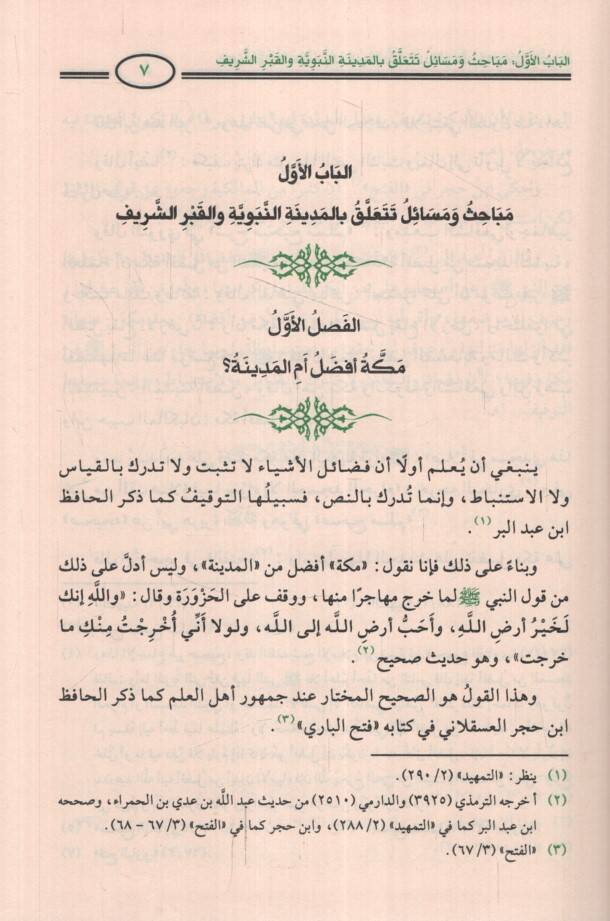 البَابُ الأَوَّلُ: مَبَاحِثُ وَمَسَائِلُ تَتَعَلَّقُ بالمَدِينَةِ النَّبَوِيَّةِ والقَبْرِ الشَّرِيفِ
٧
البَابُ الأَوَّلُ
مَبَاحِثُ وَمَسَائِلُ تَتَعَلَّقُ بالمَدِينَةِ النَّبَوِيَّةِ والقَبْرِ الشَّرِيفِ
الفَصلُ الأَوَّلُ
مَكَّةُ أفضَلُ أمِ المَدِينَةُ؟
ينبغي أن يُعلم أولًا أن فضائل الأشياء لا تثبت ولا تدرك بالقياس
ولا الاستنباط، وإنما تُدرك بالنص، فسبيلُها التوقيفُ كما ذكر الحافظ
ابن عبد البر (١).
وبناءً على ذلك فإنا نقول: «مكة» أفضل من «المدينة»، وليس أدلَّ على ذلك
من قول النبي ﷺ لما خرج مهاجرًا منها، ووقف على الحَزْوَرَة وقال: «واللَّهِ إنك
لَخَيْرُ أرضِ اللَّهِ، وأَحَبُّ أرضِ اللَّه إلى اللَّه، ولولا أنِّي أُخْرِجْتُ مِنْكِ ما
خرجت»، وهو حديث صحيح (٢).
وهذا القولُ هو الصحيح المختار عند جمهور أهل العلم كما ذكر الحافظ
ابن حجر العسقلاني في كتابه «فتح الباري» (٣).
(١) ينظر: «التمهيد» (٢/ ٢٩٠).
(٢) أخرجه الترمذي (٣٩٢٥) والدارمي (٢٥١٠) من حديث عبد اللَّه بن عدي بن الحمراء، وصححه
ابن عبد البر كما في «التمهيد» (٢/ ٢٨٨)، وابن حجر كما في «الفتح» (٣/ ٦٧ - ٦٨).
(٣) «الفتح» (٣/ ٦٧).